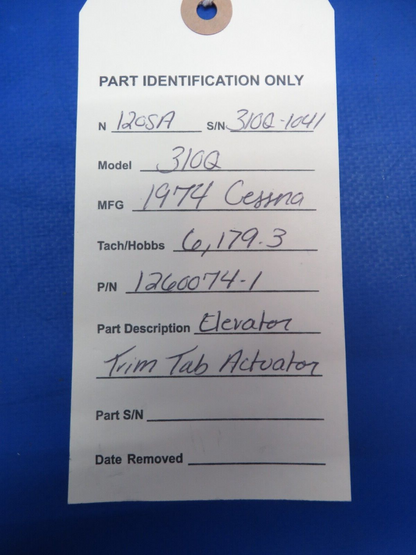 PART IDENTIFICATION ONLY
N 120SA S/N 310Q-1041
Model 310Q
MFG 1974 Cessna
Tach/Hobbs 6,179.3
P/N 1260074-1
Part Description Elevator
Trim Tab Actuator
Part S/N
Date Removed